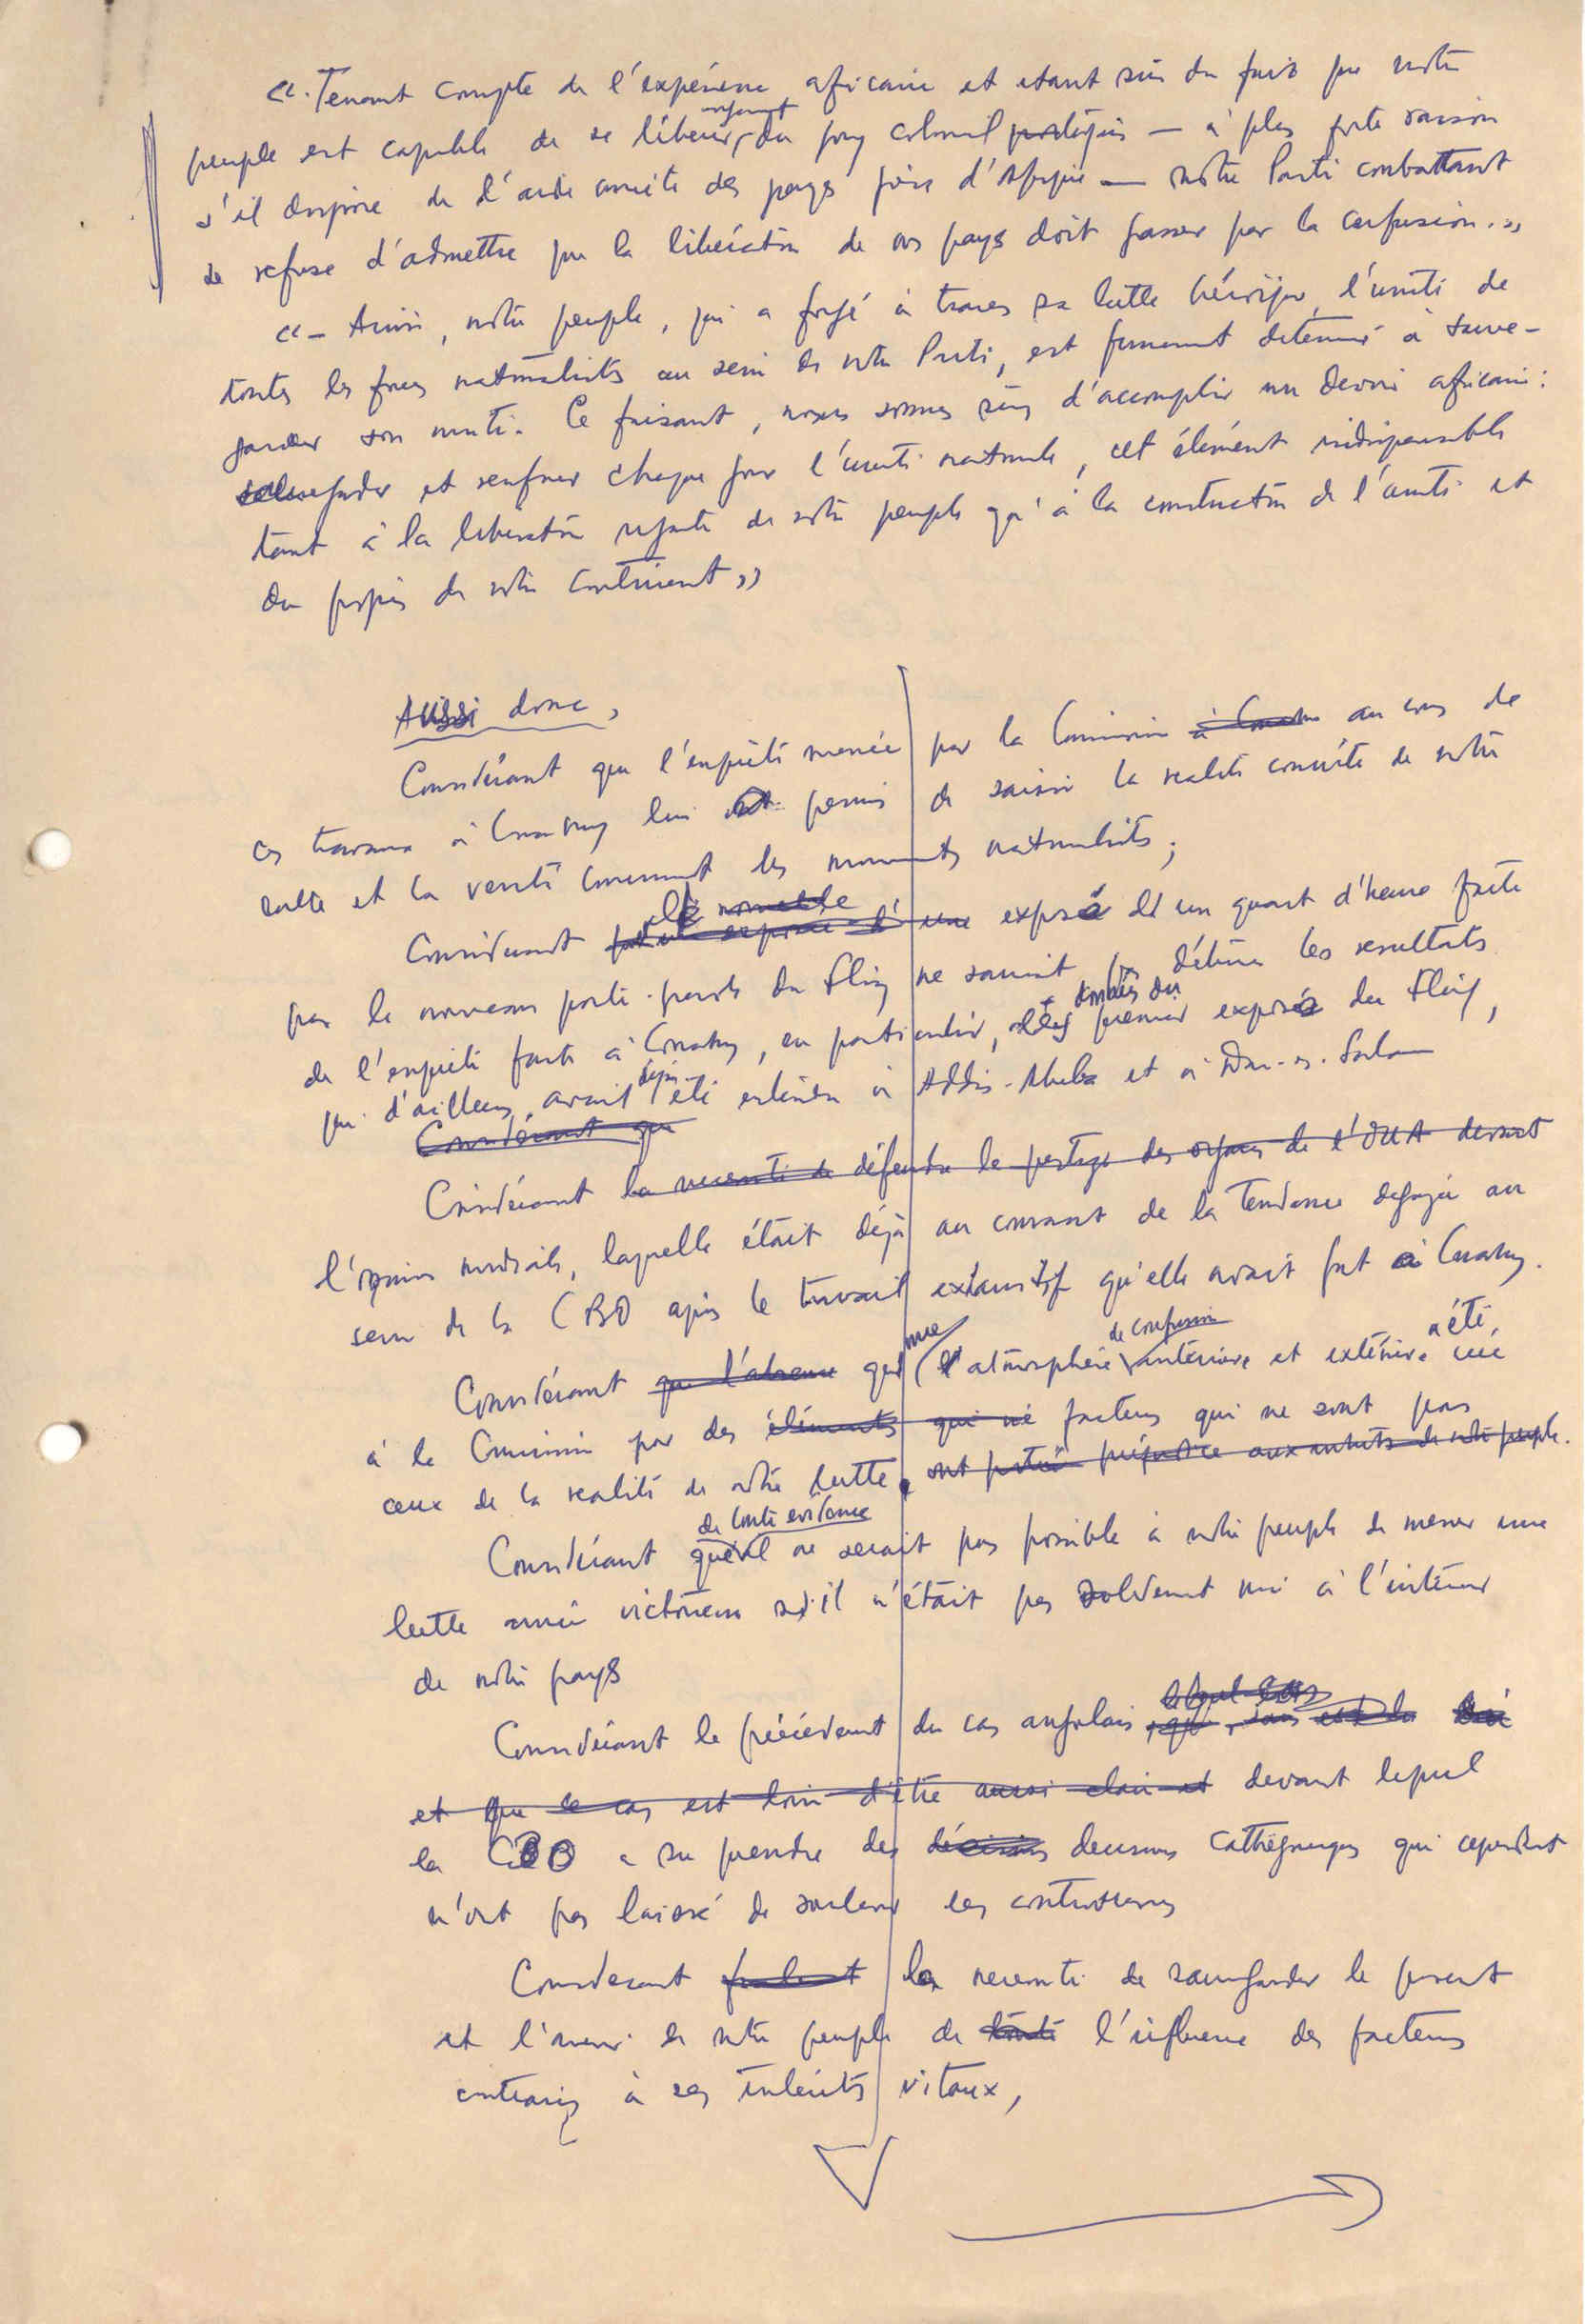 «. Tenant compte de l'expérience africaine et étant sûr du fait que notre
peuple est capable de se libérer, du joug colonial portugais — à plus forte raison
s'il dispose de l'aide concrète des pays frères d'Afrique — notre Parti combattant
se refuse d'admettre que la libération de nos pays doit passer par la confusion.»
«— Ainsi, notre peuple, qui a forgé à travers sa lutte héroïque, l'unité de
toutes les forces nationalistes au sein de notre Parti, est fermement déterminé à sauve-
garder son unité. Ce faisant, nous sommes sûrs d'accomplir un devoir africain:
sauvegarder et renforcer chaque jour l'unité nationale, cet élément indispensable
tant à la libération rapide de notre peuple qu'à la construction de l'unité et
du progrès de notre continent»
Aussi donc,
Considérant que l'enquête menée par la Commission au cours de
ces travaux à Conakry lui permis de saisir la realité concrète de notre
lutte et la verité concernant les mouvements nationalistes;
Considérant exposé d'un quart d'heure faite
par le nouveau porte-parole du Fling ne saurait pas détruire les resultats
de l'enquête faite à Conakry, en particulier, données du premier exposé du Fling,
qui d'ailleurs, avait déjà été entendu à Addis-Abeba et à Dar-es-Salam
Considérant que
Considérant la necessité de défendre le prestige des organes de l'OUA devant
l'opinion mondiale, laquelle était déjà au courant de la tendance degagée au
sein de la CBO après le travail exhaustif qu'elle avait fait à Conakry.
Considérant que l'absence que l'atmosphère de confusion intérieure et extérieure a été créé
à la Commission par des éléments qui ne facteurs qui ne sont pas
ceux de la realité de notre lutte, ont porté préjudice aux intérêts de notre peuple.
de toute evidence
Considérant qu'il ne serait pas possible à notre peuple de mener une
lutte armée victorieuse s'il n'était pas solidement uni à l'intérieur
de notre pays
Considérant le précédent du cas angolais
et que ce cas est loin d'être aussi clair et devant lequel
la CBO a su prendre des décisions decisions cathégoriques qui cependant
n'ont pas laissé de soulever les controverses
Considerant la necessité de sauvegarder le present
et l'avenir de notre peuple de toute l'influence des facteurs
contraires à ses intérêts vitaux,